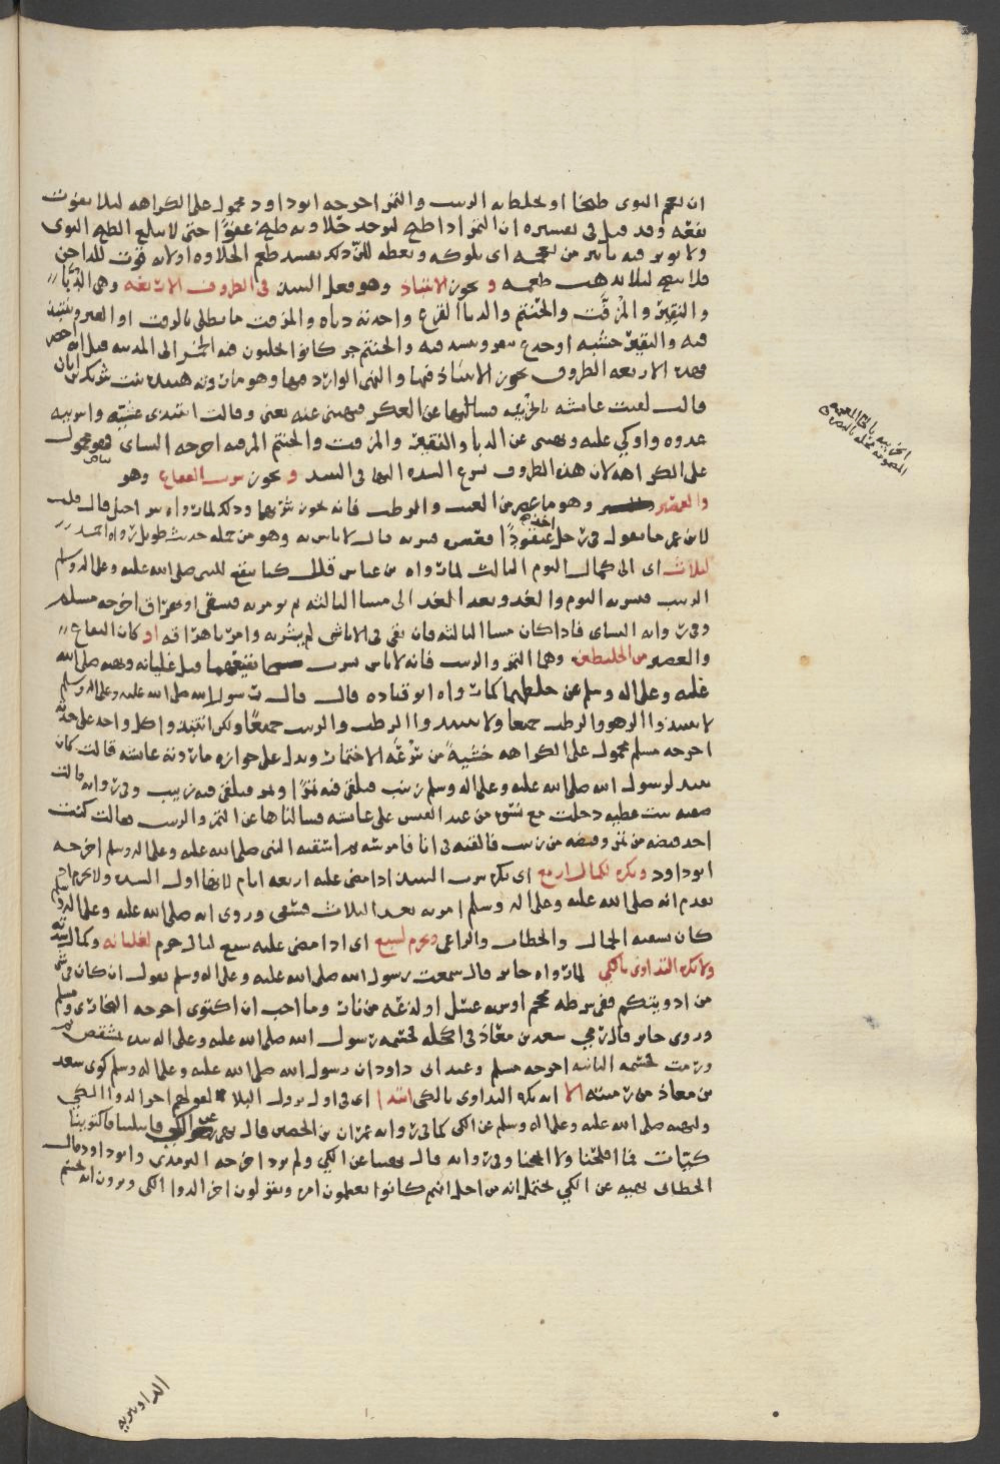 ان نعجم النوى طبخا او نخلط به الزبيب والتمر اخرجه ابو داود محمول على الكراهه ليلا يفوت
نفعه وقد قيل في تفسيره ان التمر اذا طبخ لتوخذ حلاوته طبخ عفوًا حتى لا يبلغ الطبخ النوى
ولا يوثر فيه تاثير من يعجمه اى يلوكه ويعضه لان ذلك يفسد طعم الحلاوه او لانه قوت للداجن
فلا ينضج ليلا يذهب طعمه و يجوز الانتباذ وهو فعل النبيذ في الظروف الاربعه وهى الدُبّا
والنقير والمزفّت والحنتم والدبا القرع واحدته دباه والمزفت ما يطلى بالزفت او القير وينتبذ
فيه والنقير خشبه او جذع ينقر وينبذ فيه والحنتم جر كانوا يجلبون فيه الخمر الى المدينه قيل انه اخضر
فهذه الاربعه الظروف يجوز الانتباذ فيها والنهى الوارد فيها وهو ما روته هنيده بنت شريك بن ابان
قالت لقيت عائشه بالخريبه فسالتها عن العكر فنهتنى عنه يعنى وقالت انتبذى عشيّه واشربيه
غدوه واوكي عليه ونهتنى عن الدبا والنقير والمزفت والحنتم اخرجه النساى فهو محمول
على الكراهه لان هذه الظروف تسرع الشده اليها في النبيذ و يجوز شرب الفقاع وهو
والعصير وهو ما عصر من العنب والرطب فانه يجوز شربهما وذلك لما رواه احمد قال قلت
لابن عمر ما تقول في رجل اخذ عنقودًا فعصره فشربه قال لا باس به وهو من جمله حديث طويل رواه احمد
لثلاث اى الى كمال اليوم الثالث لما رواه بن عباس قال كنا ننقع للنبى صلى الله عليه وعلى اله وسلم
الزبيب فيشربه اليوم والغد وبعد الغد الى مسا الثالثه ثم يومر به فيسقى او يهراق اخرجه مسلم
وفي روايه النساى فاذا كان مسا الثالثه فان بقى في الانا شى لم يشربه وامر به اهراقه او كان الفقاع
والعصير من الخليطين وهما التمر والزبيب فانه لا باس بشرب نقيعهما قبل غليانه ونهيه صلى الله
عليه وعلى اله وسلم عن خلطهما كما رواه ابو قتاده قال قال رسول الله صلى الله عليه وعلى اله وسلم
لا تنبذوا الزهو والرطب جميعا ولا تنبذوا الرطب والزبيب جميعًا ولكن انتبذوا كل واحد على حدته
اخرجه مسلم محمول على الكراهه خشيةً من سرعه الاختمار ويدل على جوازه ما روته عائشه قالت كان
ينبذ لرسول الله صلى الله عليه وعلى اله وسلم زبيب فيلقى فيه تمرًا وتمر فيلقى فيه زبيب وفي روايه قالت
صفيه بنت عطيه دخلت مع نسوه من عبد القيس على عائشه فسالناها عن التمر والزبيب فقالت كنت
اخذ قبضه من تمر وقبضه من زبيب فالقيه في انا فامرسه ثم اسقيه النبى صلى الله عليه وعلى اله وسلم اخرجه
ابو داود ويكره لكمال اربع اى يكره شرب النبيذ اذا مضى عليه اربعه ايام لانها اول الشده ولا يحرم اذ
تقدم انه صلى الله عليه وعلى اله وسلم امر به بعد الثلاث فسقى وروى انه صلى الله عليه وعلى اله وسلم
كان يسقيه الجمال والحطاب والراعى ويحرم لسبع اى اذا مضى عليه سبع ليال حرم لغليانه وكمال شدته
ولا يكره التداوى بالكي لما رواه جابر قال سمعت رسول الله صلى الله عليه وعلى اله وسلم يقول ان كان في شى
من ادويتكم ففى شرطه محجم او شربه عسل او لذعه من نار وما احب ان اكتوى اخرجه البخارى ومسلم
وروى جابر قال رمي سعد بن معاذ في اكحله فحسمه رسول الله صلى الله عليه وعلى اله بيده بمشقص ثم
ورمت فحسمه الثانيه اخرجه مسلم وعند ابى داود ان رسول الله صلى الله عليه وعلى اله وسلم كوى سعد
بن معاذ من رميته الا انه يكره التداوى بالكى ابتدا اى في اول نزول البلا لقولهم اخر الدوا الكي
ولنهيه صلى الله عليه وعلى اله وسلم عن الكى كما في روايه عمران بن الحصين قال نهى عن الكي فابتلينا فاكتوينا
كيات فما افلحنا ولا انجحنا وفي روايه قال نهينا عن الكي ولم يرد اخرجه الترمذى وابو داود قال
الخطابى نهيه عن الكي يحتمل انه من اجل انهم كانوا يعظمون امره ويقولون اخر الدوا الكى ويرون انه يحسم
الخريبه بالخا المعجمه
المضمومه محله بالبصره
الدا ويبريه